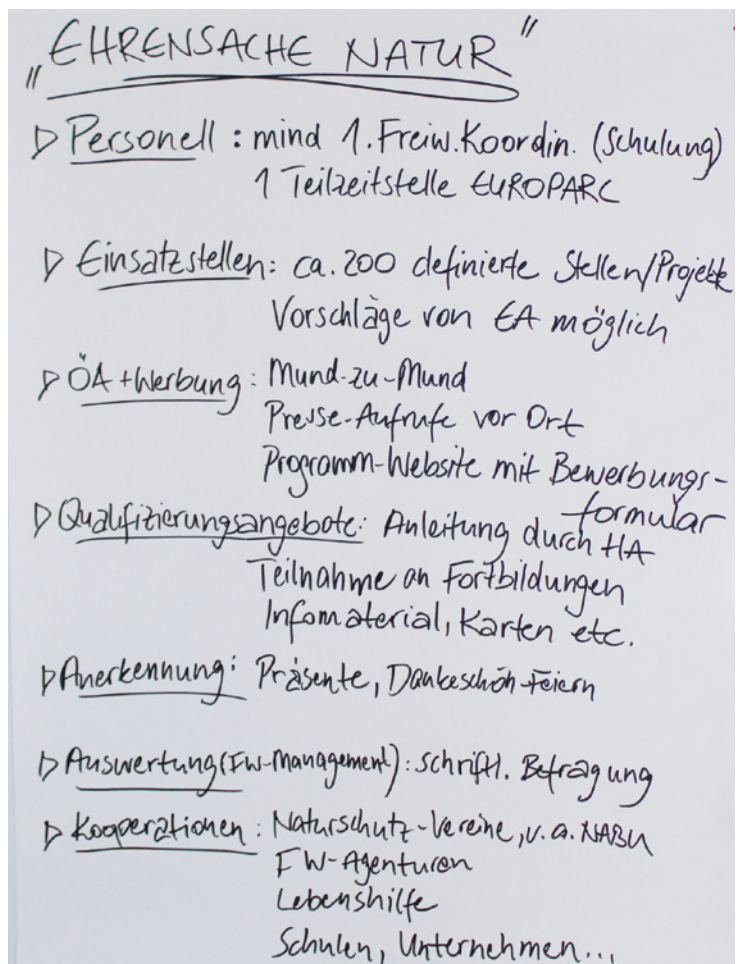 „EHRENSACHE NATUR"
▷ Personell: mind 1. Freiw. Koordin. (Schulung)
1 Teilzeitstelle EUROPARC
▷ Einsatzstellen: ca. 200 definierte Stellen/Projekte
Vorschläge von EA möglich
▷ ÖA + Werbung: Mund-zu-Mund
Presse-Aufrufe vor Ort
Programm-Website mit Bewerbungs-
formular
▷ Qualifizierungsangebote: Anleitung durch HA
Teilnahme an Fortbildungen
Infomaterial, Karten etc.
▷ Anerkennung: Präsente, Dankeschön-Feiern
▷ Auswertung (FW-Management): schriftl. Befragung
▷ Kooperationen: Naturschutz-Vereine, v. a. NABU
FW-Agenturen
Lebenshilfe
Schulen, Unternehmen...